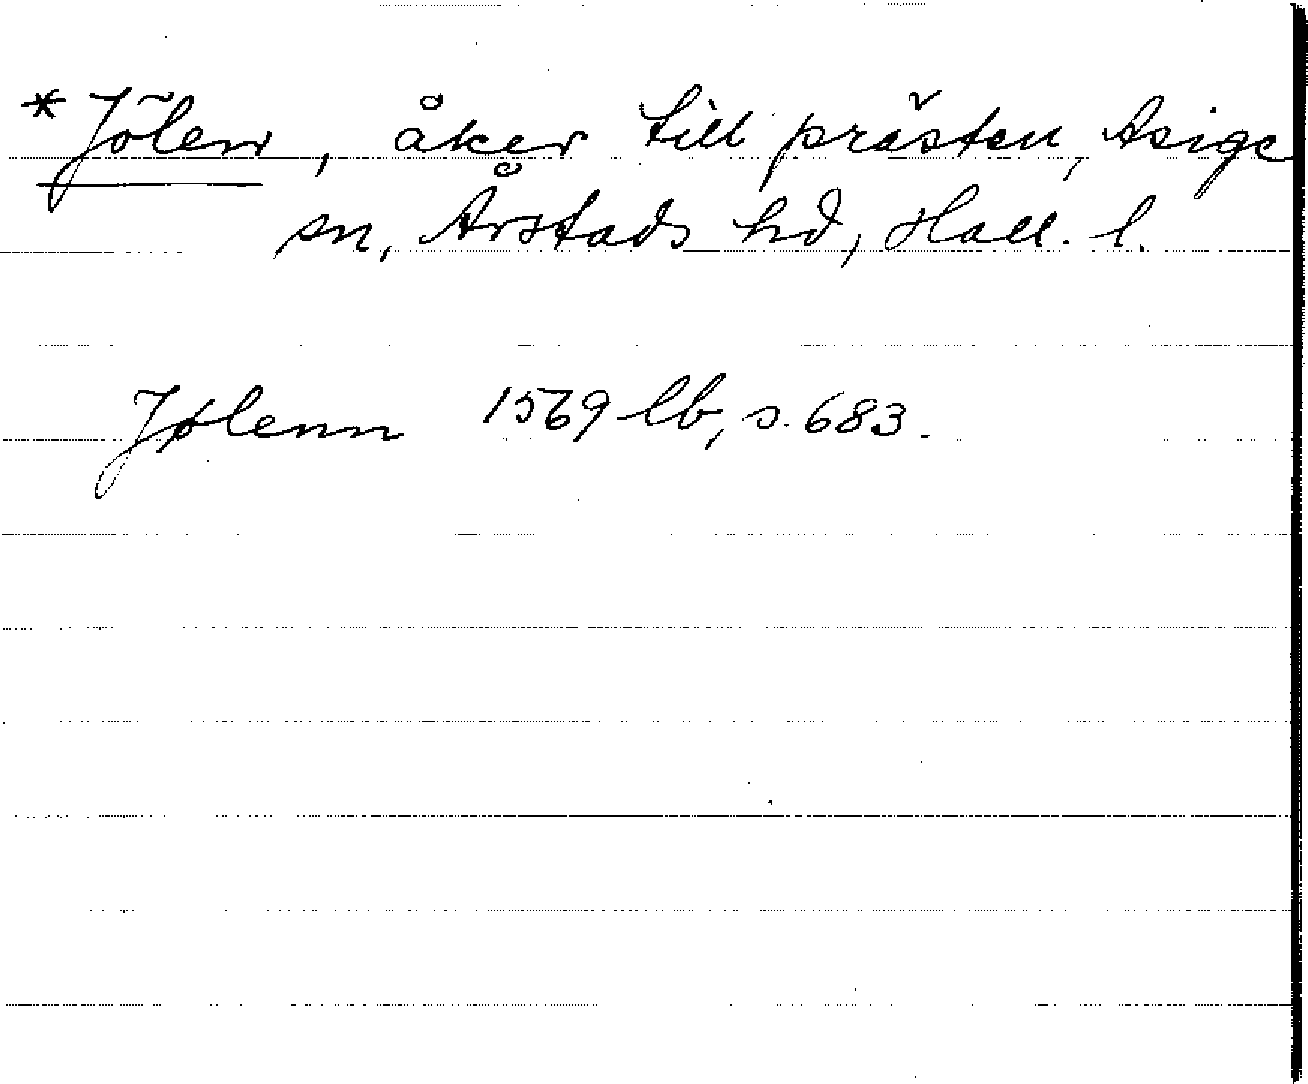 *Jölen, åker till prästen, Asige
sn, Årstads hd, Hall. l.
Jølenn 1569 lb, s. 683.